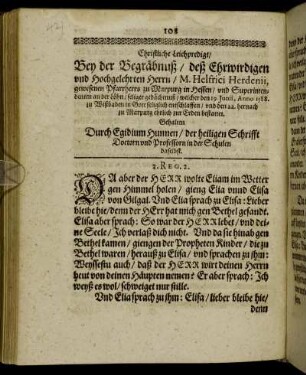 108
Christliche Leichpredigt/
Bey der Begräbnuß / deß Ehrwirdigen
vnd Hochgelehrten Herrn / M. Helfrici Herdenii,
gewesenen Pfarrherrn zu Marpurg in Hessen / vnd Superinten-
denten an der Löhn / seliger gedächtnuß / welcher den 19. Junii, Anno 1588.
zu Wißbaden in Gott seliglich entschlaffen / vnd den 22. hernach
zu Marpurg ehrlich zur Erden bestattet.
Gehalten
Durch Egidium Hunnen / der heiligen Schrifft
Doctorn vnd Professorn in der Schulen
daselbst.
2. REG. 2.
DA aber der HERR wolte Eliam im Wetter
gen Himmel holen / gieng Elia vnnd Elisa
von Gilgal. Vnd Elia sprach zu Elisa: Lieber
bleibe hie / denn der HErr hat mich gen Bethel gesandt.
Elisa aber sprach: So war der HERR lebet / vnd dei-
ne Seele / Ich verlaß dich nicht. Vnd da sie hinab gen
Bethel kamen / giengen der Propheten Kinder / die zu
Bethel waren / herauß zu Elisa / vnd sprachen zu jhm:
Weyssestu auch / daß der HERR wirt deinen Herrn
heut von deinen Häupten nemen? Er aber sprach: Ich
weyß es wol / schweiget nur stille.
Vnd Elia sprach zu jhm: Elisa / lieber bleibe hie /
denn